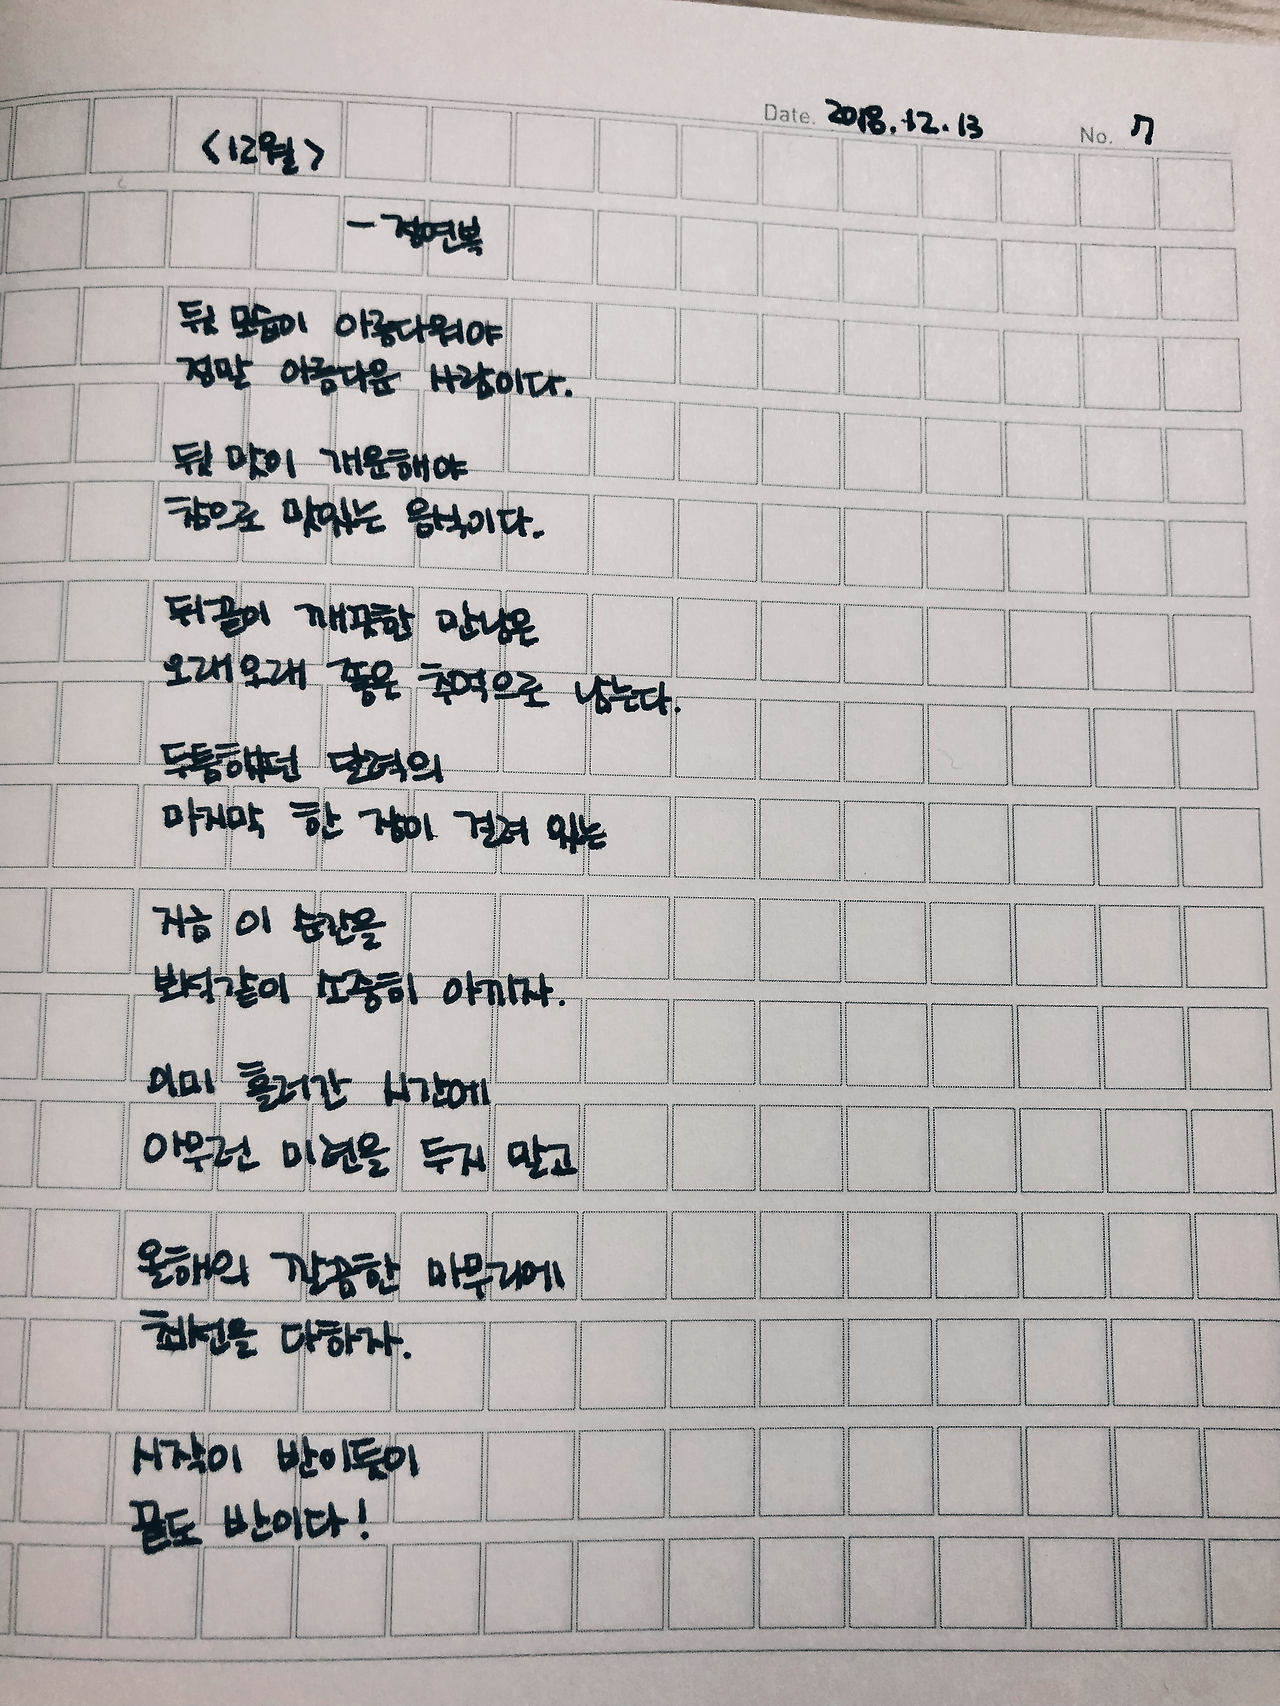 Date. 2018.12.13 No. 7
<12월>
- 정연복
뒷모습이 아름다워야
정말 아름다운 사람이다.
뒷맛이 개운해야
참으로 맛있는 음식이다.
뒤끝이 깨끗한 만남은
오래오래 좋은 추억으로 남는다.
두툼했던 달력의
마지막 한 장이 걸려 있는
지금 이 순간을
보석같이 소중히 아끼자.
이미 흘러간 시간에
아무런 미련을 두지 말고
올해의 깔끔한 마무리에
최선을 다하자.
시작이 반이듯이
끝도 반이다!